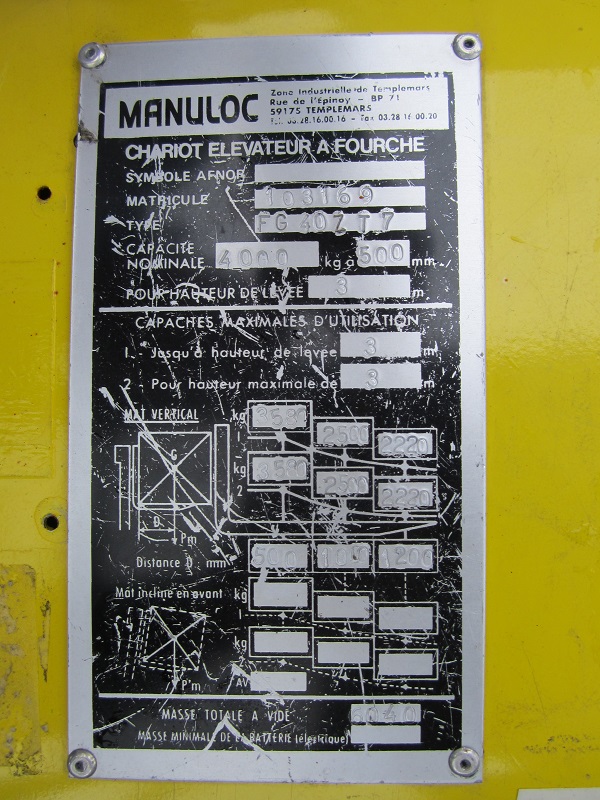 MANULOC
Zone Industrielle de Templemars
Rue de l'Épinoy - BP 71
59175 TEMPLEMARS
Tél. 03.28.16.00.16 - Fax 03.28.16.00.20
CHARIOT ELEVATEUR A FOURCHE
SYMBOLE AFNOR
MATRICULE 163169
TYPE FG 40Z T7
CAPACITE NOMINALE 4000 kg à 500 mm
POUR HAUTEUR DE LEVÉE 3 m
CAPACITES MAXIMALES D'UTILISATION
1 - Jusqu'à hauteur de levée 3 m
2 - Pour hauteur maximale de 3 m
MAT VERTICAL kg 3580 2500 2220
1
G
kg 3580 2500 2220
2
D
Pm
Distance D mm 500 1000 1200
Mat incliné en avant kg
1
kg
2
P'm AV
MASSE TOTALE A VIDE
MASSE MINIMALE DE LA BATTERIE (électrique)